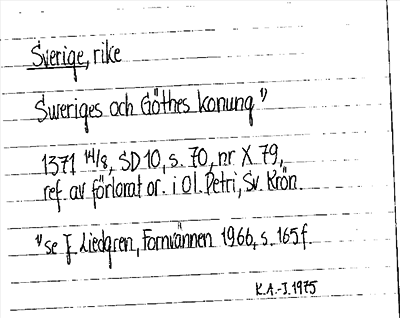 Sverige, rike
Sweriges och Göthes konung 1)
1371 14/8, SD 10, s. 70, nr X 79,
ref. av förlorat or. i Ol. Petri, Sv. Krön.
1) se J. Liedgren, Fornvännen 1966, s. 165 f.
K.A.-J. 1975